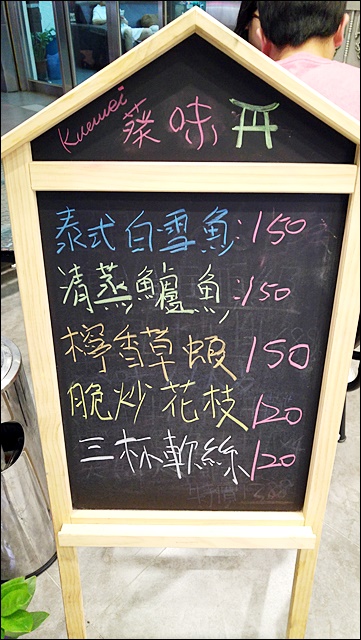 Kuewei 葵味
泰式白雪魚:150
清蒸鱸魚:150
檸香草蝦150
脆炒花枝120
三杯軟絲120